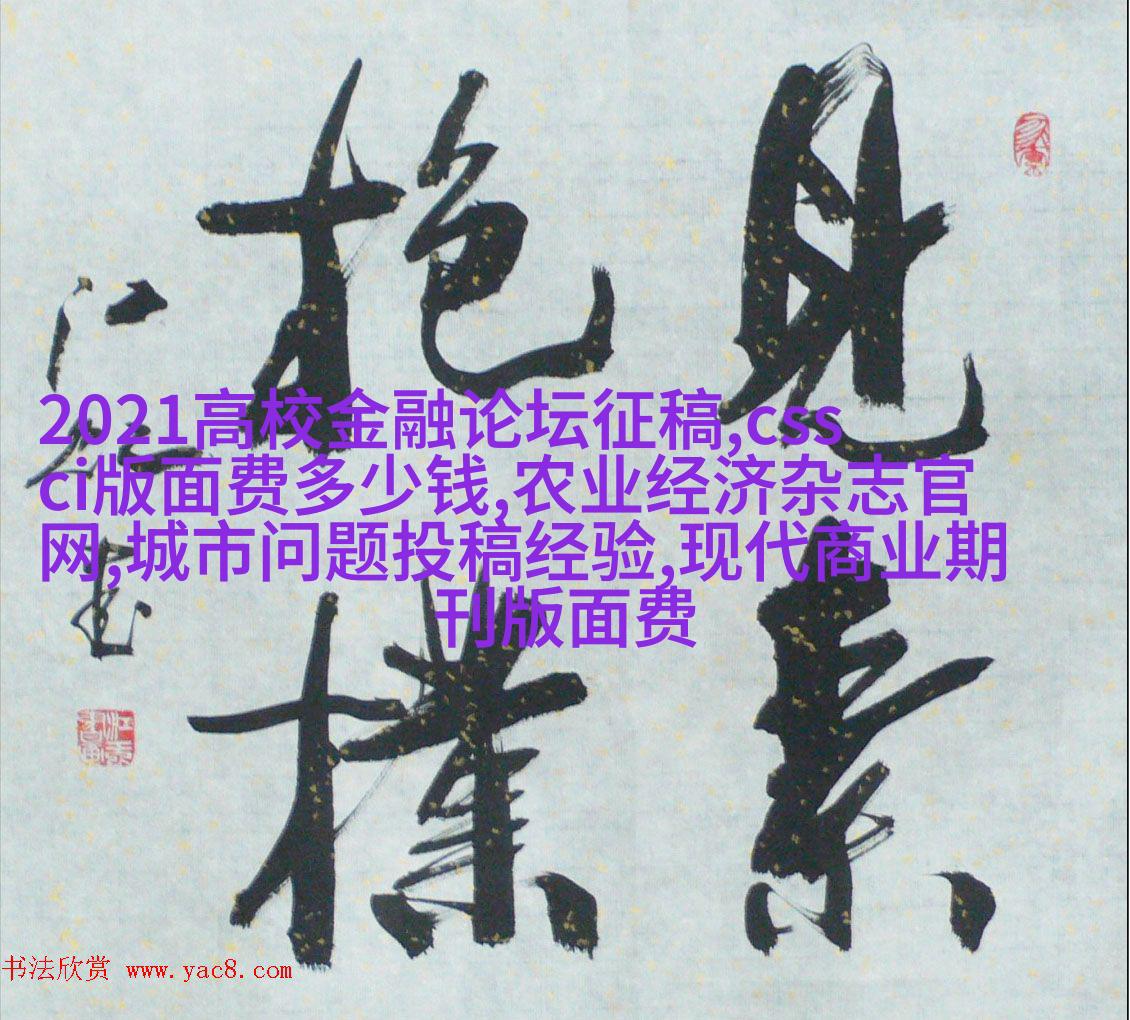 見素
抱樸
2021高校金融论坛征稿,css
ci版面费多少钱,农业经济杂志官
网,城市问题投稿经验,现代商业期
刊版面费
书法欣赏 www.yac8.com